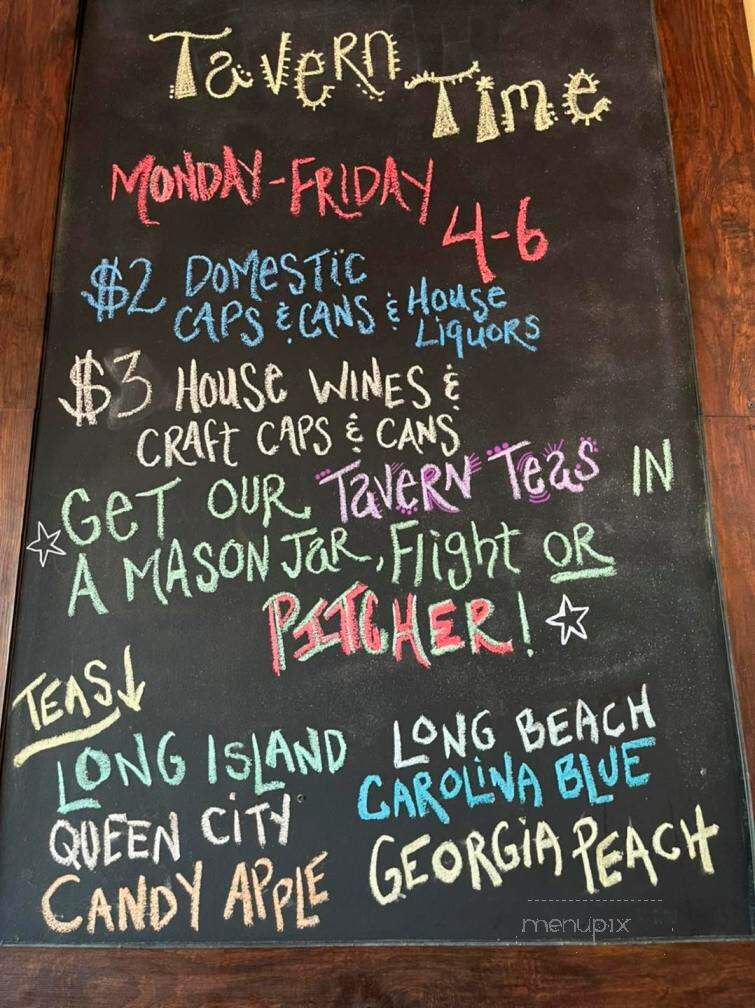 Tavern Time
MONDAY-FRIDAY
4-6
$2 DOMESTIC
CAPS & CANS & House
LIQUORS
$3 House WINES &
CRAFT CAPS & CANS
GeT OUR TAVERN Teas IN
A MASON JaR, Flight OR
PITCHER!
TEAS↓
LONG ISLAND
QUEEN CiTY
CANDY APPLE
LONG BEACH
CAROLINA BLUE
GEORGIA PEACH
menupix